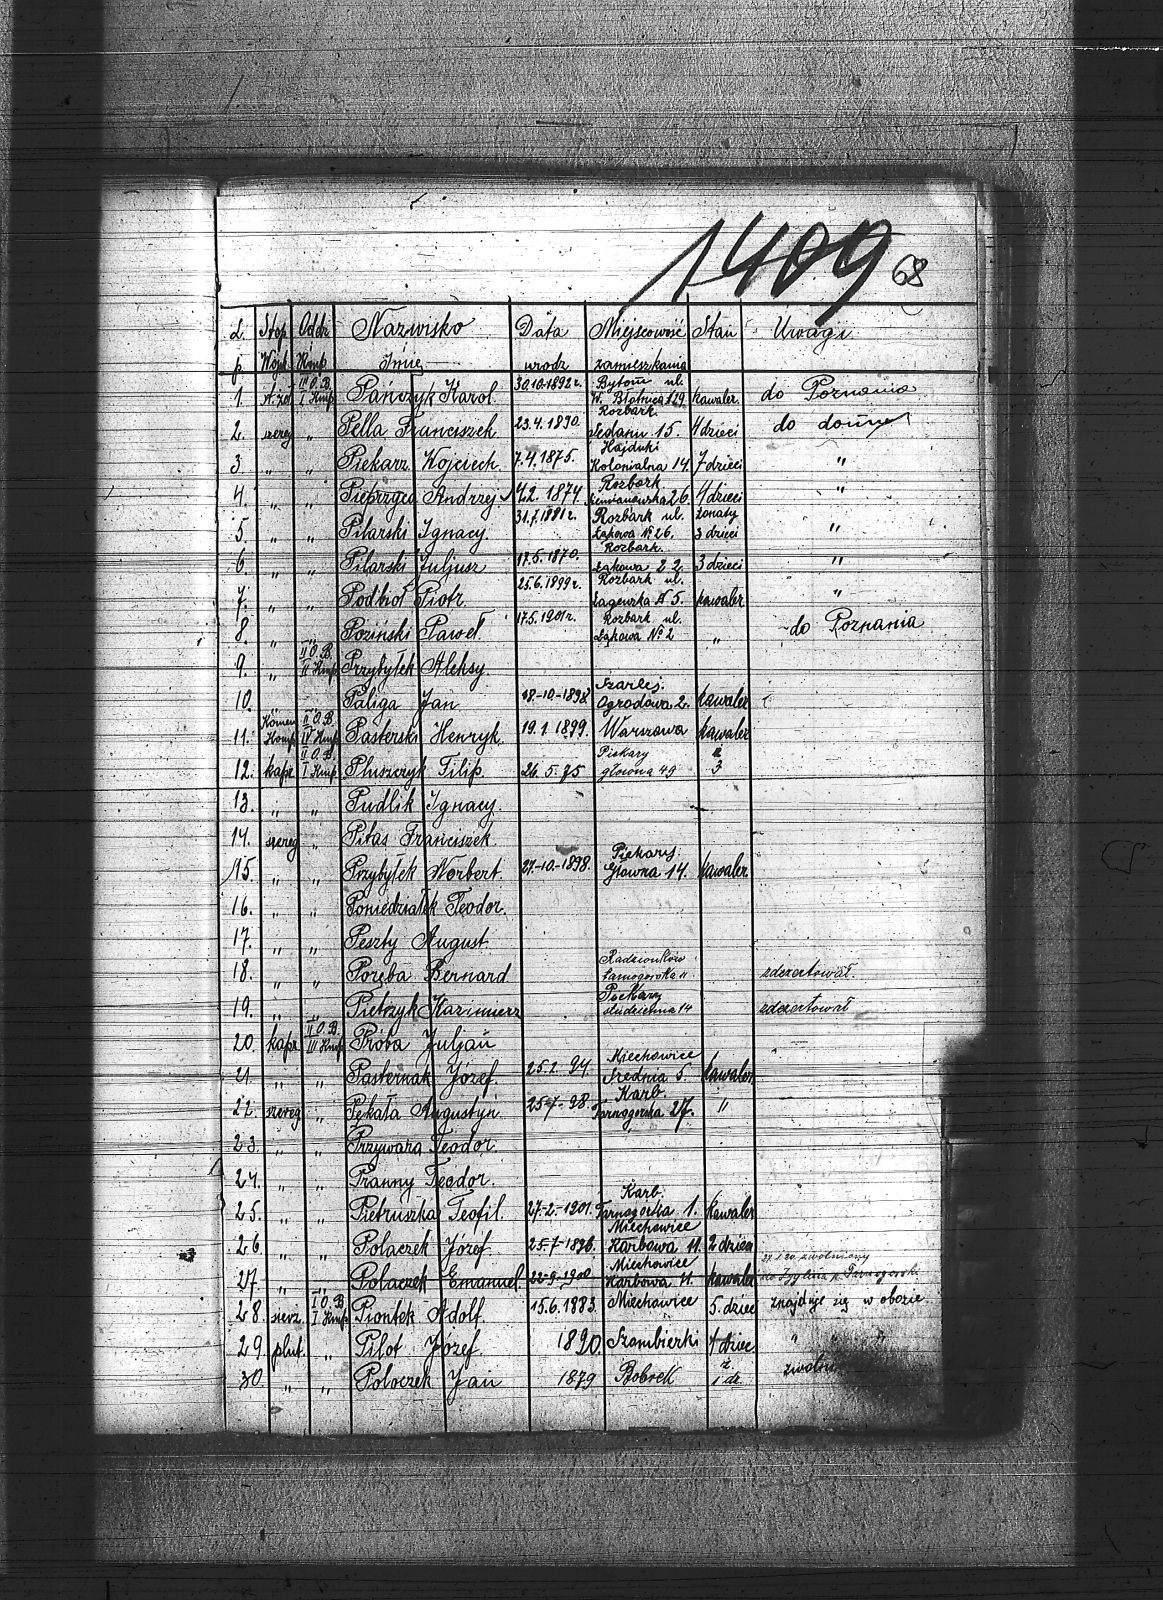 1409 68
L. Stop. Oddz. Nazwisko Data Miejscowość Stan Uwagi
p. Wojsk. Kmp. Imię urodz zamieszkania
III O.B. 30.10.1892 r. Bytom ul.
1. st. żoł I Kmp. Pańczyk Karol. W. Błotnica 129 kawaler. do Poznania
Rozbark
2. szereg " Pella Franciszek 23.4.1890. Sedanu 15. 4 dzieci do domu
Hajduki
3. " " Piekarz Wojciech. 7.4.1875. Kolonialna 14. 7 dzieci "
Rozbark
4. " " Pieprzyca Andrzej 4.2.1874. Siemianowska 26. 4 dzieci "
31.7.1881 r. Rozbark ul. żonaty
5. " " Pilarski Ignacy Łąkowa № 26. 3 dzieci "
Rozbark.
6. " " Pilarski Juljusz 17.5.1870. Łąkowa 22. 3 dzieci "
25.6.1899 r. Rozbark ul.
7. " " Podkoł Piotr. № 5. kawaler "
17.5.1901 r. Rozbark ul.
8. " " Poziński Paweł. Łąkowa № 2 " do Poznania
II O.B.
9. " II Kmp Przybyłek Aleksy.
Szarlej.
10. " " Paliga Jan 18-10-1898 Ogrodowa 2. kawaler
Komen II O.B.
11. Komp IV Kmp Pasterski Henryk. 19.1.1899. Warszawa kawaler
II O.B. Piekary ż
12. kapr I Kmp. Pluszczyk Filip. 26.5.75 główna 49 3
13. " " Pudlik Ignacy.
14. szereg " Pitas Franciszek.
Piekary
15. " " Przybyłek Norbert. 27-10-1898. Główna 14. kawaler
16. " " Poniedziałek Teodor.
17. " " Peszty August.
Radzionków
18. " " Poręba Bernard tarnogorska " zdezertował.
Piekary
19. " " Pietrzyk Kazimierz studzienna 14 zdezertował
II O.B.
20. kapr III Kmp Proba Juljan
Miechowice
21. " " Pasternak Józef. 25.2.94. Średnia 5. kawaler
Karb.
22. szereg " Pękała Augustyn. 25-7-98. Tarnogorska 27. "
23. " " Przywara Teodor.
24. " " Pranny Teodor.
Karb.
25. " " Pietruszka Teofil. 27-2-1901. Tarnogorska 1. kawaler
Miechowice
26. " " Polaczek Józef 25-7-1896. Karbowa 11. 2 dzieci
Miechowice zwolniony
27. " " Polaczek Emanuel. 22-9-1900 Karbowa 11. kawaler
I O.B.
28. sierż. I Kmp Piontek Adolf. 15.6.1883. Miechowice 5. dziec znajduje się w obozie.
29. plut. " Pilot Józef. 1890. Szombierki 4 dziec " " "
ż.
30. " " Polaczek Jan 1879 Bobrek i dz.